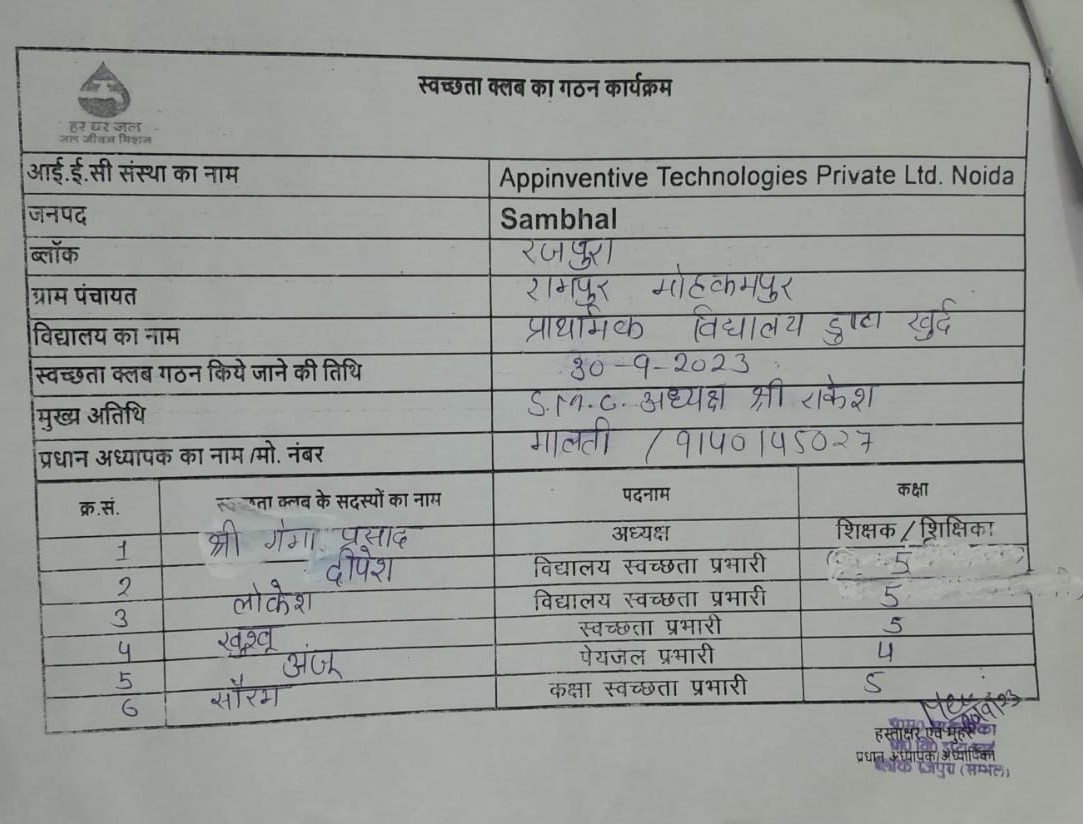 स्वच्छता क्लब का गठन कार्यक्रम
हर घर जल
जल जीवन मिशन
आई.ई.सी संस्था का नाम Appinventive Technologies Private Ltd. Noida
जनपद Sambhal
ब्लॉक रजपुरा
ग्राम पंचायत रामपुर मोहकमपुर
विद्यालय का नाम प्राथमिक विद्यालय खुर्द
स्वच्छता क्लब गठन किये जाने की तिथि 30-9-2023
मुख्य अतिथि S.M.C. अध्यक्ष श्री राकेश
प्रधान अध्यापक का नाम /मो. नंबर मालती / 9140145027
क्र.सं. स्वच्छता क्लब के सदस्यों का नाम पदनाम कक्षा
1 श्री गंगा प्रसाद अध्यक्ष शिक्षक / शिक्षिका
2 दीपेश विद्यालय स्वच्छता प्रभारी 5
3 लोकेश विद्यालय स्वच्छता प्रभारी 5
4 खुश्बू स्वच्छता प्रभारी 5
5 अंजू पेयजल प्रभारी 4
6 सौरभ कक्षा स्वच्छता प्रभारी 5
हस्ताक्षर एवं मुहर
प्रधान अध्यापक/अध्यापिका